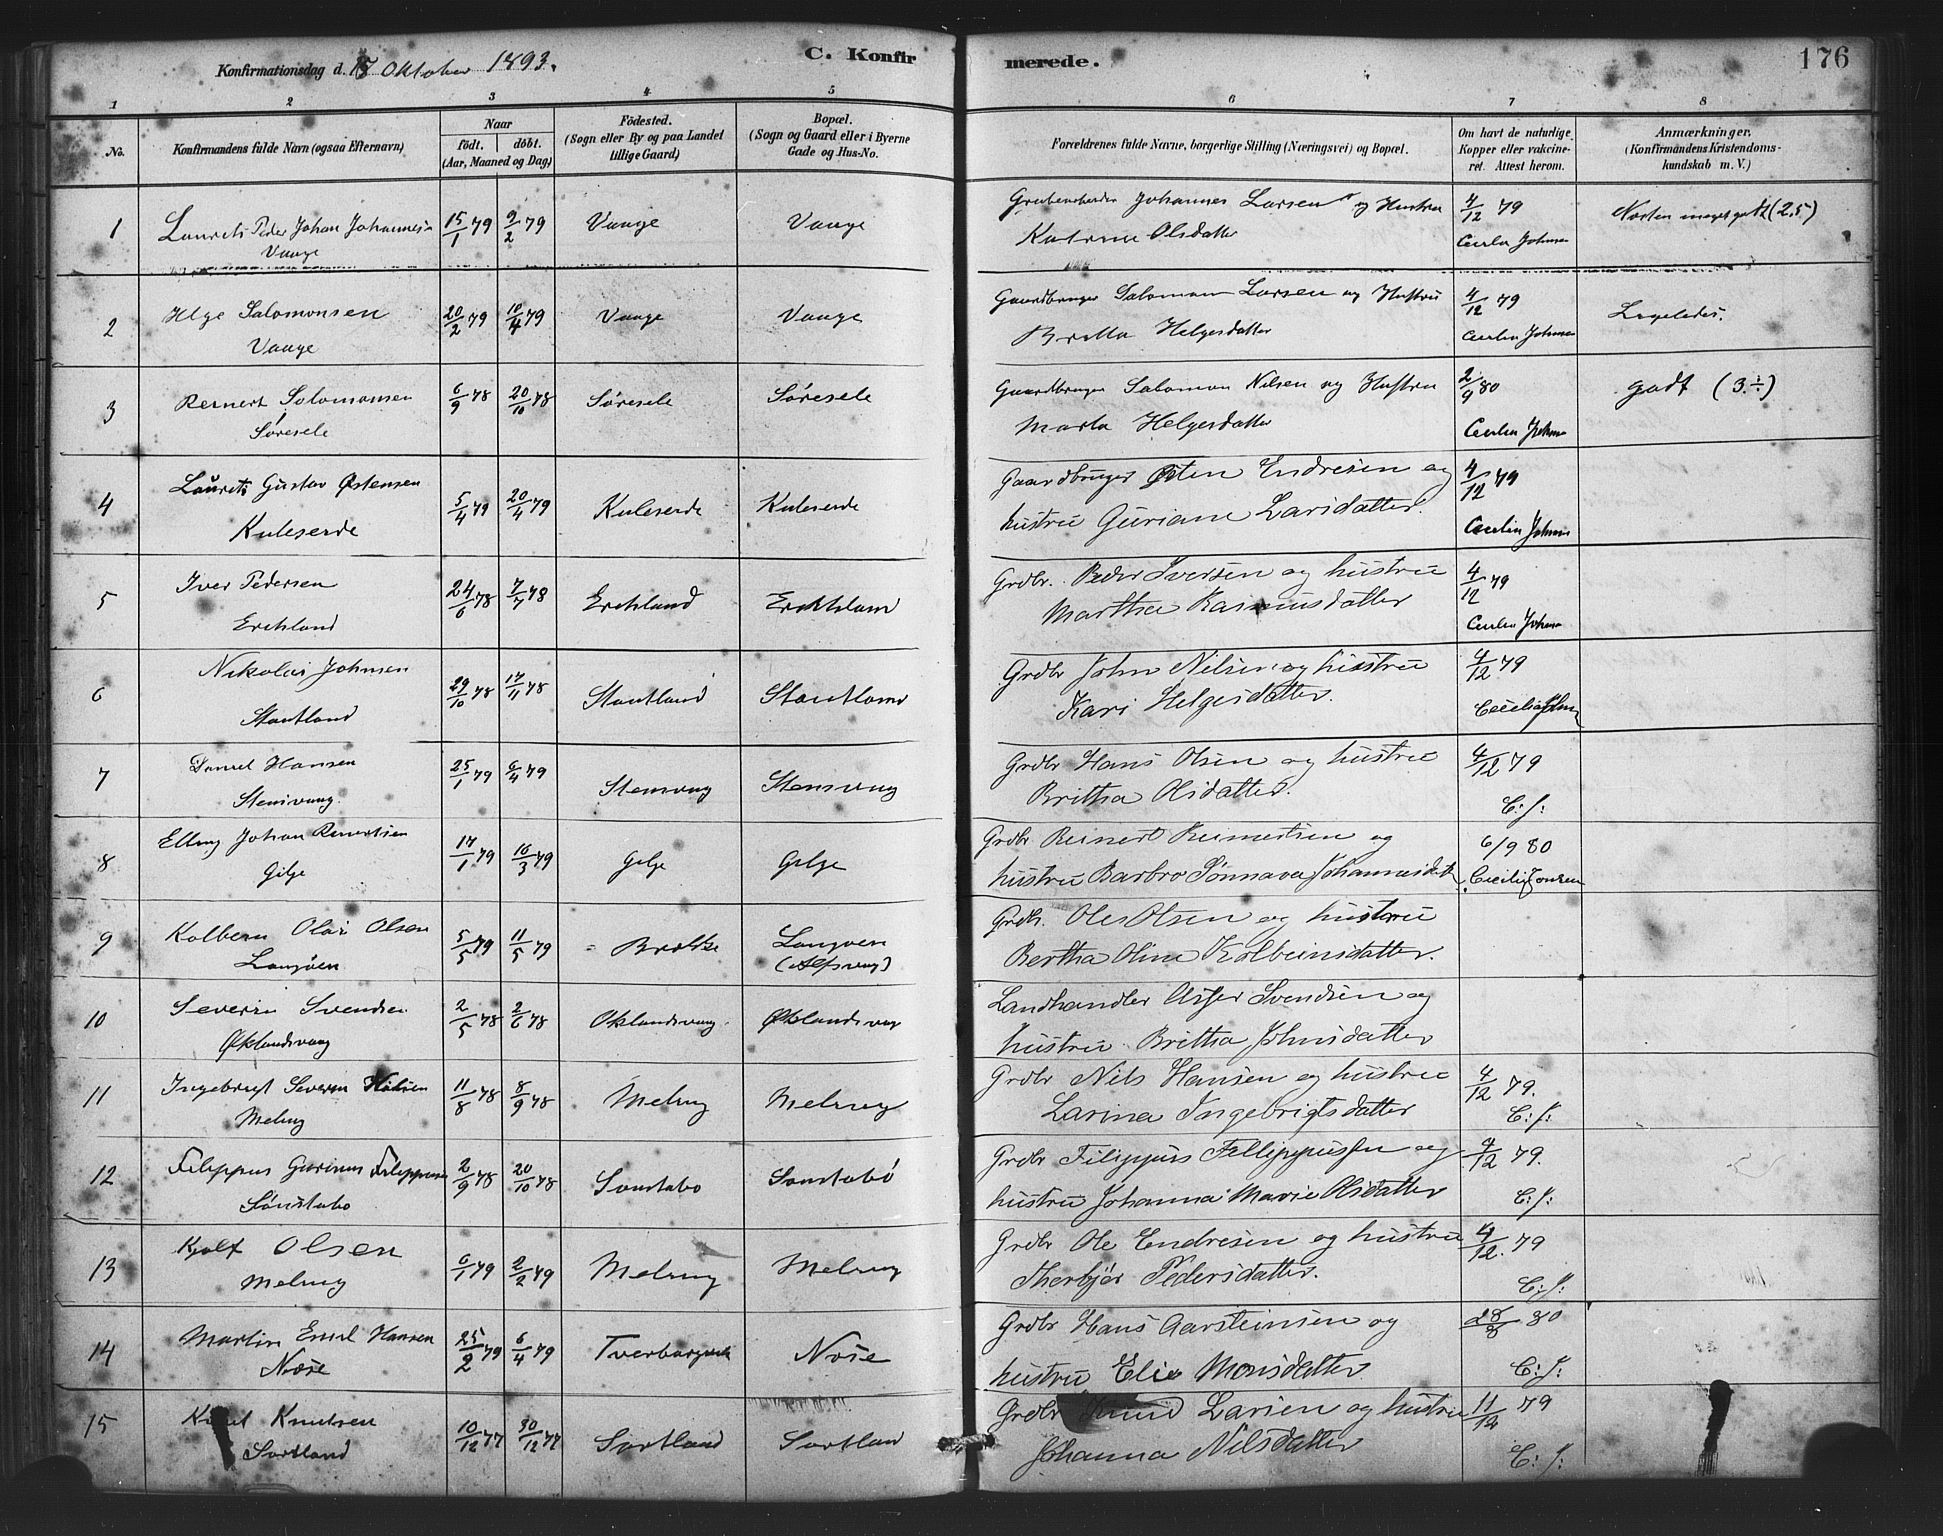 Konfirmationsdag d. 15 Oktober 1893.
C. Konfirmerede.
176
1 2 3 4 5 6 7 8
No.
Konfirmandens fulde Navn (ogsaa Efternavn)
Naar
födt. döbt.
(Aar, Maaned og Dag)
Födested.
(Sogn eller By og paa Landet
tillige Gaard)
Bopæl.
(Sogn og Gaard eller i Byerne
Gade og Hus-No.
Forældrenes fulde Navne, borgerlige Stilling (Næringsvei) og Bopæl.
Om havt de naturlige
Kopper eller vakcine-
ret. Attest herom.
Anmærkninger.
(Konfirmandens Kristendoms-
kundskab m. V.)
1 Laurits Peder Johan Johannes 15/1 79 9/2 79 Vaage Vaage Johannes Larsen og Hustru 4/12 79 Næsten meget godt (2.5)
Vaage Olsdatter
2 Helge Salomonsen 20/2 79 10/4 79 Vaage Vaage Gaardbruger Salomon Larsen og Hustru 4/12 79 Ligeledes.
Vaage Britta Helgesdatter
3 Reinert Salomonsen 6/9 78 20/10 78 Søresele Søresele Gaardbruger Salomon Nilsen og Hustru 2/9 80 godt (3.÷)
Søresele Marta Helgesdatter
4 Laurits Gustav Østensen 5/4 79 20/4 79 Kuleseide Kuleseide Gaardbruger Østen Endresen og 4/12 79
Kuleseide hustru Guriane Larsdatter.
5 Iver Pedersen 24/6 78 7/7 78 Erchland Grdbr. Peder Iversen og hustru 4/12 79
Martha Rasmusdatter
6 Nikolai Johnsen 29/10 78 17/11 78 Stautland Stautland Grdbr John Nilsen og hustru 4/12 79
Stautland Kari Helgesdatter.
7 Daniel Hansen 25/1 79 6/4 79 Stensvaag Stensvaag Grdbr Hans Olsen og hustru 4/12 79
Stensvaag. Britha Olsdatter. C: J:
8 Elling Johan Reinertsen 17/1 79 16/3 79 Gilje Gilje Grdbr Reinert Reinertsen og 6/9 80
Gilje hustru Barbro Sønnava Johannesdatt.
9 Kolbein Olai Olsen 5/5 79 11/5 79 Langøen Grdbr. Ole Olsen og hustru
Langøen (Alfsvaag) Bertha Oline Kolbeinsdatter.
10 Severin Svendsen 2/5 78 2/6 78 Øklandsvaag Landhandler Svendsen og
Øklandsvaag hustru Britha Johnsdatter
11 Ingebrigt Severin 11/8 78 8/9 78 Meling Meling Grdbr Nils Hansen og hustru 4/12 79.
Meling Larina Ingebrigtsdatter C: J:
12 Filippus Filippusen 2/9 78 20/10 78 Sønstabø Sønstabø Grdbr Filippus Fillippussen og 4/12 79.
Sønstabø hustru Johanna Marie Olsdatter C: J:
13 Kjolf Olsen 6/1 79 2/2 79 Meling Meling Grdbr Ole Endresen og hustru 4/12. 79
Meling Thorbjør Pedersdatter. C: J:
14 Martin Emil Hansen 25/2 79 6/4 79 Nøse Grdbr Hans Aarsteinsen og 28/8 80
hustru Elie Monsdatter C: J:
15 Knut Knutsen 10/12 77 30/12 77 Sortland Sortland Grdbr Knud Larsen og hustru 79
Sortland Johanna Nilsdatter C: J: